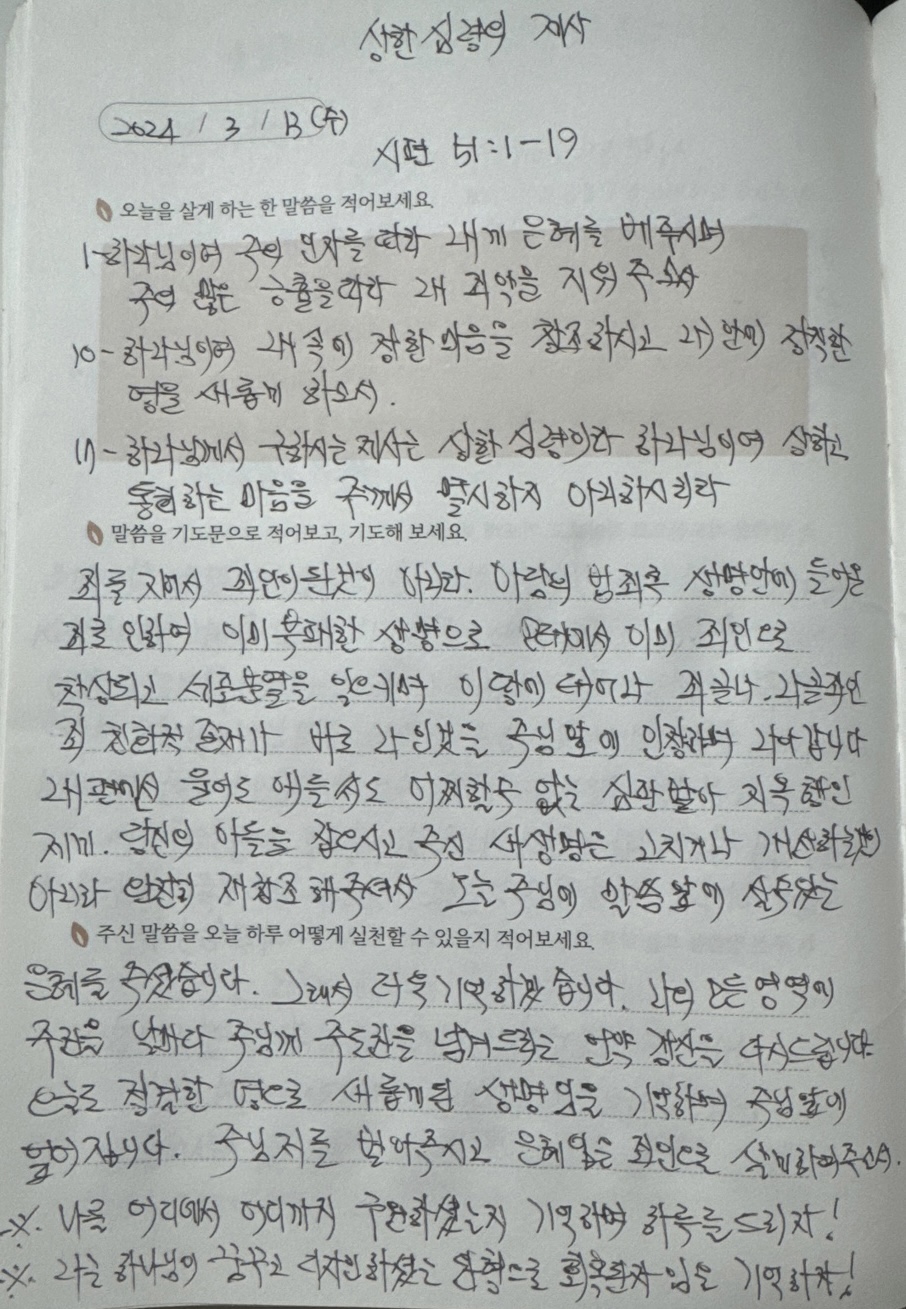 상한 심령의 제사
2024 / 3 / 13 (수)
시편 51:1-19
오늘을 살게 하는 한 말씀을 적어보세요.
1-하나님이여 주의 인자를 따라 내게 은혜를 베푸시며
주의 많은 긍휼을 따라 내 죄악을 지워 주소서
10-하나님이여 내 속에 정한 마음을 창조하시고 내 안에 정직한
영을 새롭게 하소서.
17-하나님께서 구하시는 제사는 상한 심령이라 하나님이여 상하고
통회하는 마음을 주께서 멸시하지 아니하시리라
말씀을 기도문으로 적어보고, 기도해 보세요.
죄를 지어서 죄인이 된것이 아니라. 아담의 범죄로 생명안에 들어온
죄로 인하여 이미 부패한 생명으로 모태에서 이미 죄인으로
죄 친화적 존재가 바로 나인것을 주님 앞에 인정하며 나아갑니다
내편에서 울어도 애를 써도 어찌할수 없는 심판받아 지옥행인
제게. 당신의 아들을 잡으시고 주신 새생명은 고치거나 개선하는것이
아니라 완전히 재창조 해주셔서 오늘 주님의 말씀앞에 설수있는
주신 말씀을 오늘 하루 어떻게 실천할 수 있을지 적어보세요.
은혜를 주셨습니다. 그래서 더욱 기억하겠습니다. 나의 모든 영역에
주권을 날마다 주님께 주도권을 넘겨드리는 언약 갱신을 다시드립니다.
오늘도 정직한 영으로 새롭게된 생명임을 기억하며 주님앞에
엎어집니다. 주님 저를 받아주시고 은혜입은 죄인으로 살게하여주소서.
※. 나를 어디에서 어디까지 구원하셨는지 기억하며 하루를 드리자!
※. 나는 하나님이 꿈꾸고 디자인하셨던 원형으로 회복된자 임을 기억하자!